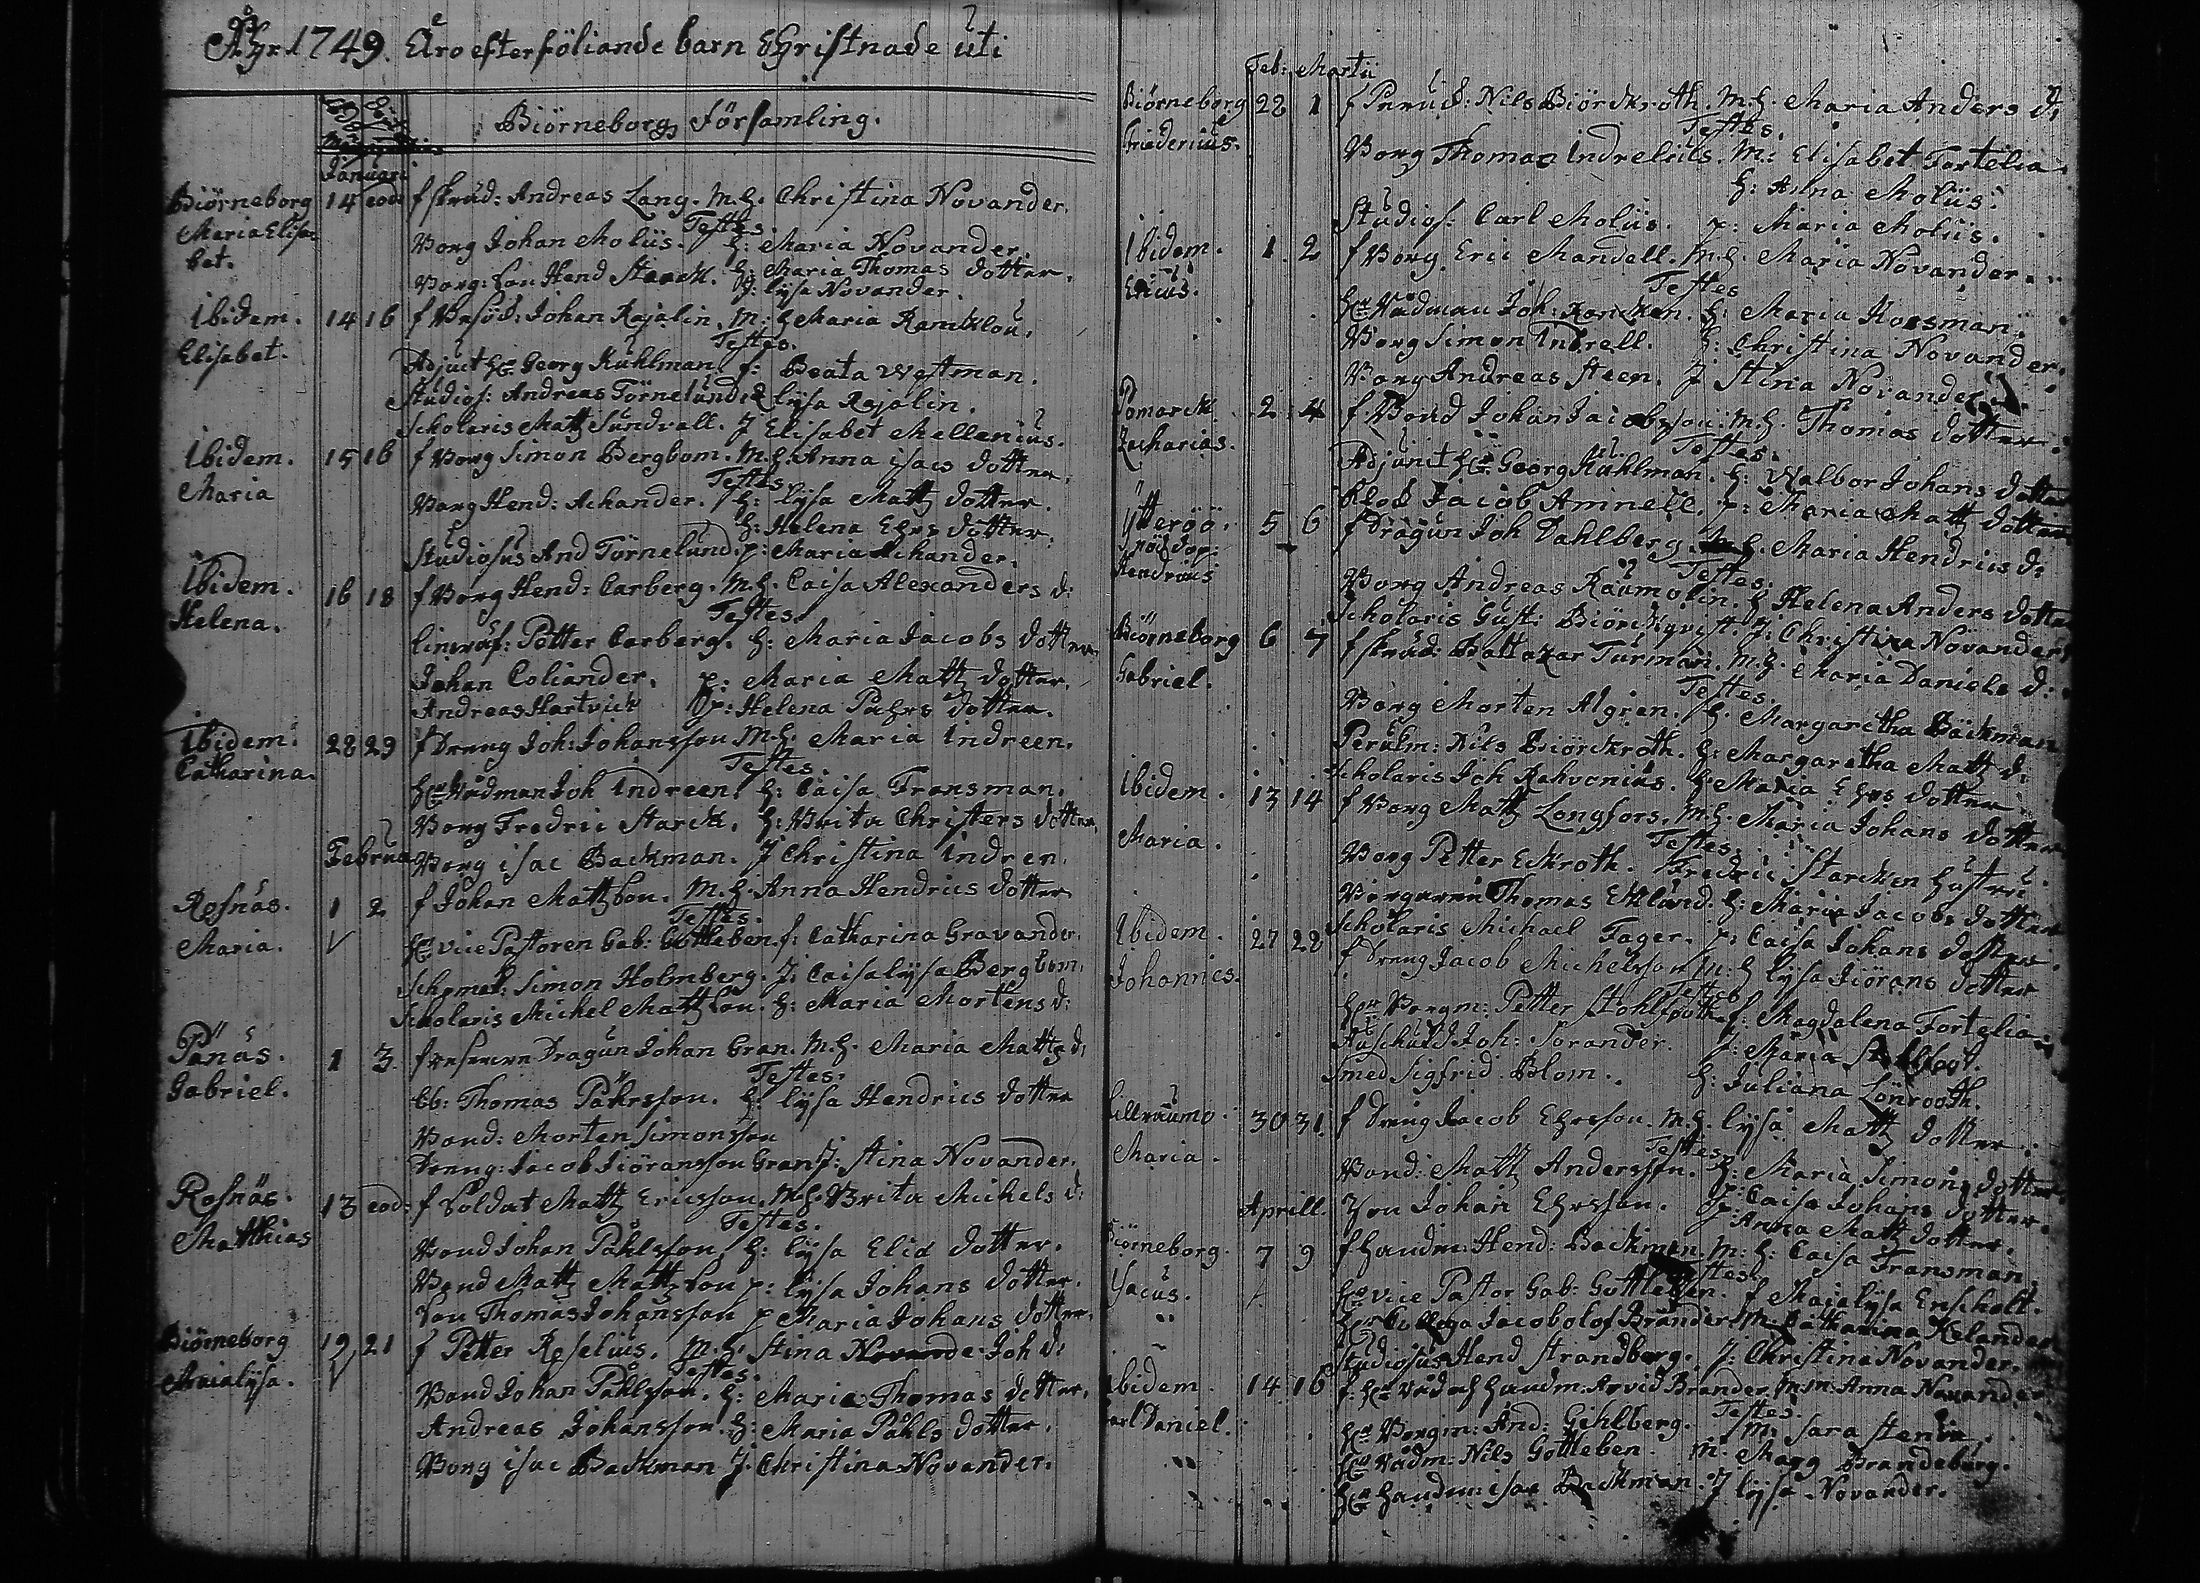 Åhr 1749. Äro efterföliande barn Christnade uti
Biörneborgs Församling.
Januari
Biörneborg 14 eod: f skrud: Andreas Lang. M. h. Christina Novander.
Maria Elisa Testes.
bet. Borg Johan Moliis. h: Maria Novander.
Borg: son Hend Starck. h: Maria Thomas dotter.
J: lijsa Novander.
Ibidem. 14 16 f Johan Rajalin. M: h Maria Ramklou.
Elisabet. Testes.
Adjunct Hr Georg Kuhlman. f: Beata Wettman.
Studios: Andreas Törnelund. lijsa Rajalin.
Scholaris Matz Sundvall. J Elisabet Mellenius.
Ibidem. 15 16 f Borg Simon Bergbom. M. h. Anna isacs dotter.
Maria Testes.
Borg Hend: Achander. h: lijsa Matz dotter.
h: Helena Ehrs dotter.
Studiosus And Törnelund. p: Maria Achander.
Ibidem. 16 18 f Borg Hend: Carberg. M. h. Caisa Alexanders d:
Helena. Testes.
Petter Carberg. h: Maria Jacobs dotter.
Johan Coliander. p: Maria Matz dotter.
Andreas Hartvick p: Helena Påhrs dotter.
Ibidem. 28 29 f Dreng Joh: Johansson M. h. Maria Indreen.
Catharina. Testes.
Hr Rådman Joh Indreen. h: Caisa Fransman.
Borg Fredric Starck. h: Brita Christers dotter.
Februa Borg isac Backman. J Christina Indren.
Rosnäs. 1 2 f Johan Matzson. M. h. Anna Hendrics dotter
Maria. Testes.
Hr vice Pastoren Gab: Gottleben. f: Catharina Gravander.
Simon Holmberg. J: Caisalijsa Bergbom.
Scholaris Michel Matzson. h: Maria Mortens d:
Pänäs. 1 3. f Dragun Johan Gran. M. h. Maria Matts d:
Gabriel. Testes.
Thomas Påhrsson. h: lijsa Hendrics dotter
Bond: Morten Simonsson
Dreng: Jacob Jiöransson Gran J: Stina Novander.
Rosnäs. 13 eod: f Soldat Matz Ericsson. M. h. Brita Michels d:
Matthias Testes.
Bond Johan Påhlsson. h: lijsa Elia dotter.
Bond Matz Matzson p: lijsa Johans dotter.
Son Thomas Johansson p Maria Johans dotter.
Biörneborg 19 21 f Petter Roselius. M. h. Stina Novande Joh d:
Maialijsa. Testes.
Bond Johan Påhlsson. h: Maria Thomas dotter.
Andreas Johansson. h: Maria Påhls dotter.
Borg isac Backman J. Christina Novander.
Feb: Martii
Biörneborg 28 1 f Nils Biörckroth. M. h. Maria Anders d:
Friedericus. Testes.
Borg Thomas Indrelius. M: Elisabet Fortelia.
h: Anna Moliis.
Studios: Carl Moliis. p: Maria Moliis.
Ibidem. 1 2 f Borg Eric Mandell. M. h. Maria Novander.
Ericus. Testes
Hr Rådman Joh: Rancken. h: Maria Korsman.
Borg Simon Indrell. h: Christina Novander.
Borg Andreas Steen. J Stina Novander.
Pomarck 2 4 f. Bond Johan Jacobsson. M. h. Thomas dotter.
Zacharias. Testes.
Adjunct Hr Georg Kuhlman. h: Walbor Johans dotter
Jacob Aminell. p: Maria Matz dotter
Ytteröö. 5 6 f Dragun Joh Dahlberg. M. h. Maria Hendrics d:
nöd dop: Testes.
Hendricus Borg Andreas Raumolin. h Helena Anders dotter
Scholaris Gust: Biörckqvist. J: Christina Novander.
Biörneborg 6 7 f skrud: Baltazar Turman. M. h. Maria Daniels d:
Gabriel. Testes.
Borg Morten Algren. h. Margaretha Backman
Nils Biörckroth. h: Margaretha Matz d:
Scholaris Joh Rahvonius. h: Maria Ehrs dotter
Ibidem. 13 14 f Borg Matz Longfors. M. h. Maria Johans dotter
Maria. Testes.
Borg Petter Eckroth. Fredric Starcken hustru.
Borgaren Thomas Ekelund. h: Maria Jacobs dotter
Scholaris Michael Fager. p: Caisa Johans dotter.
Ibidem. 27 28 f Dreng Jacob Michelsson M: h lijsa Jiörans dotter
Johannes. Testes
Hr Borgm: Petter Stohlfooth. f: Magdalena Fortelia.
Joh: Sorander. J: Maria Stohlfoot.
Smed Sigfrid Blom. h: Juliana Lönrooth.
Lillraumo. 30 31 f Dreng Jacob Ehrsson. M. h. lijsa Matz dotter.
Maria. Testes
Bond: Matz Andersson. h: Maria Simons dotter.
Son Johan Ehrsson. p: Caisa Johans dotter.
p: Anna Matz dotter.
Aprill.
Biörneborg. 7 9 f handm: Hend: Backman. M: h: Caisa Fransman.
Testes
Hr vice Pastor Gab: Gottleben. f Maialijsa Enscholt.
Hr Collega Jacob olof Brander M Catharina Kelander
Studiosus Hend Strandberg. J: Christina Novander.
Ibidem. 14 16 f: Hr Råd och handm: Arvid Brander M: m: Anna Novander
Carl Daniel. Testes.
Hr Borgm: And: Gehlberg. M: Sara Stenia.
Hr Rådm: Nils Gottleben. M. Marg Brandeburg.
Hr handm: isac Backman. J lijsa Novander.